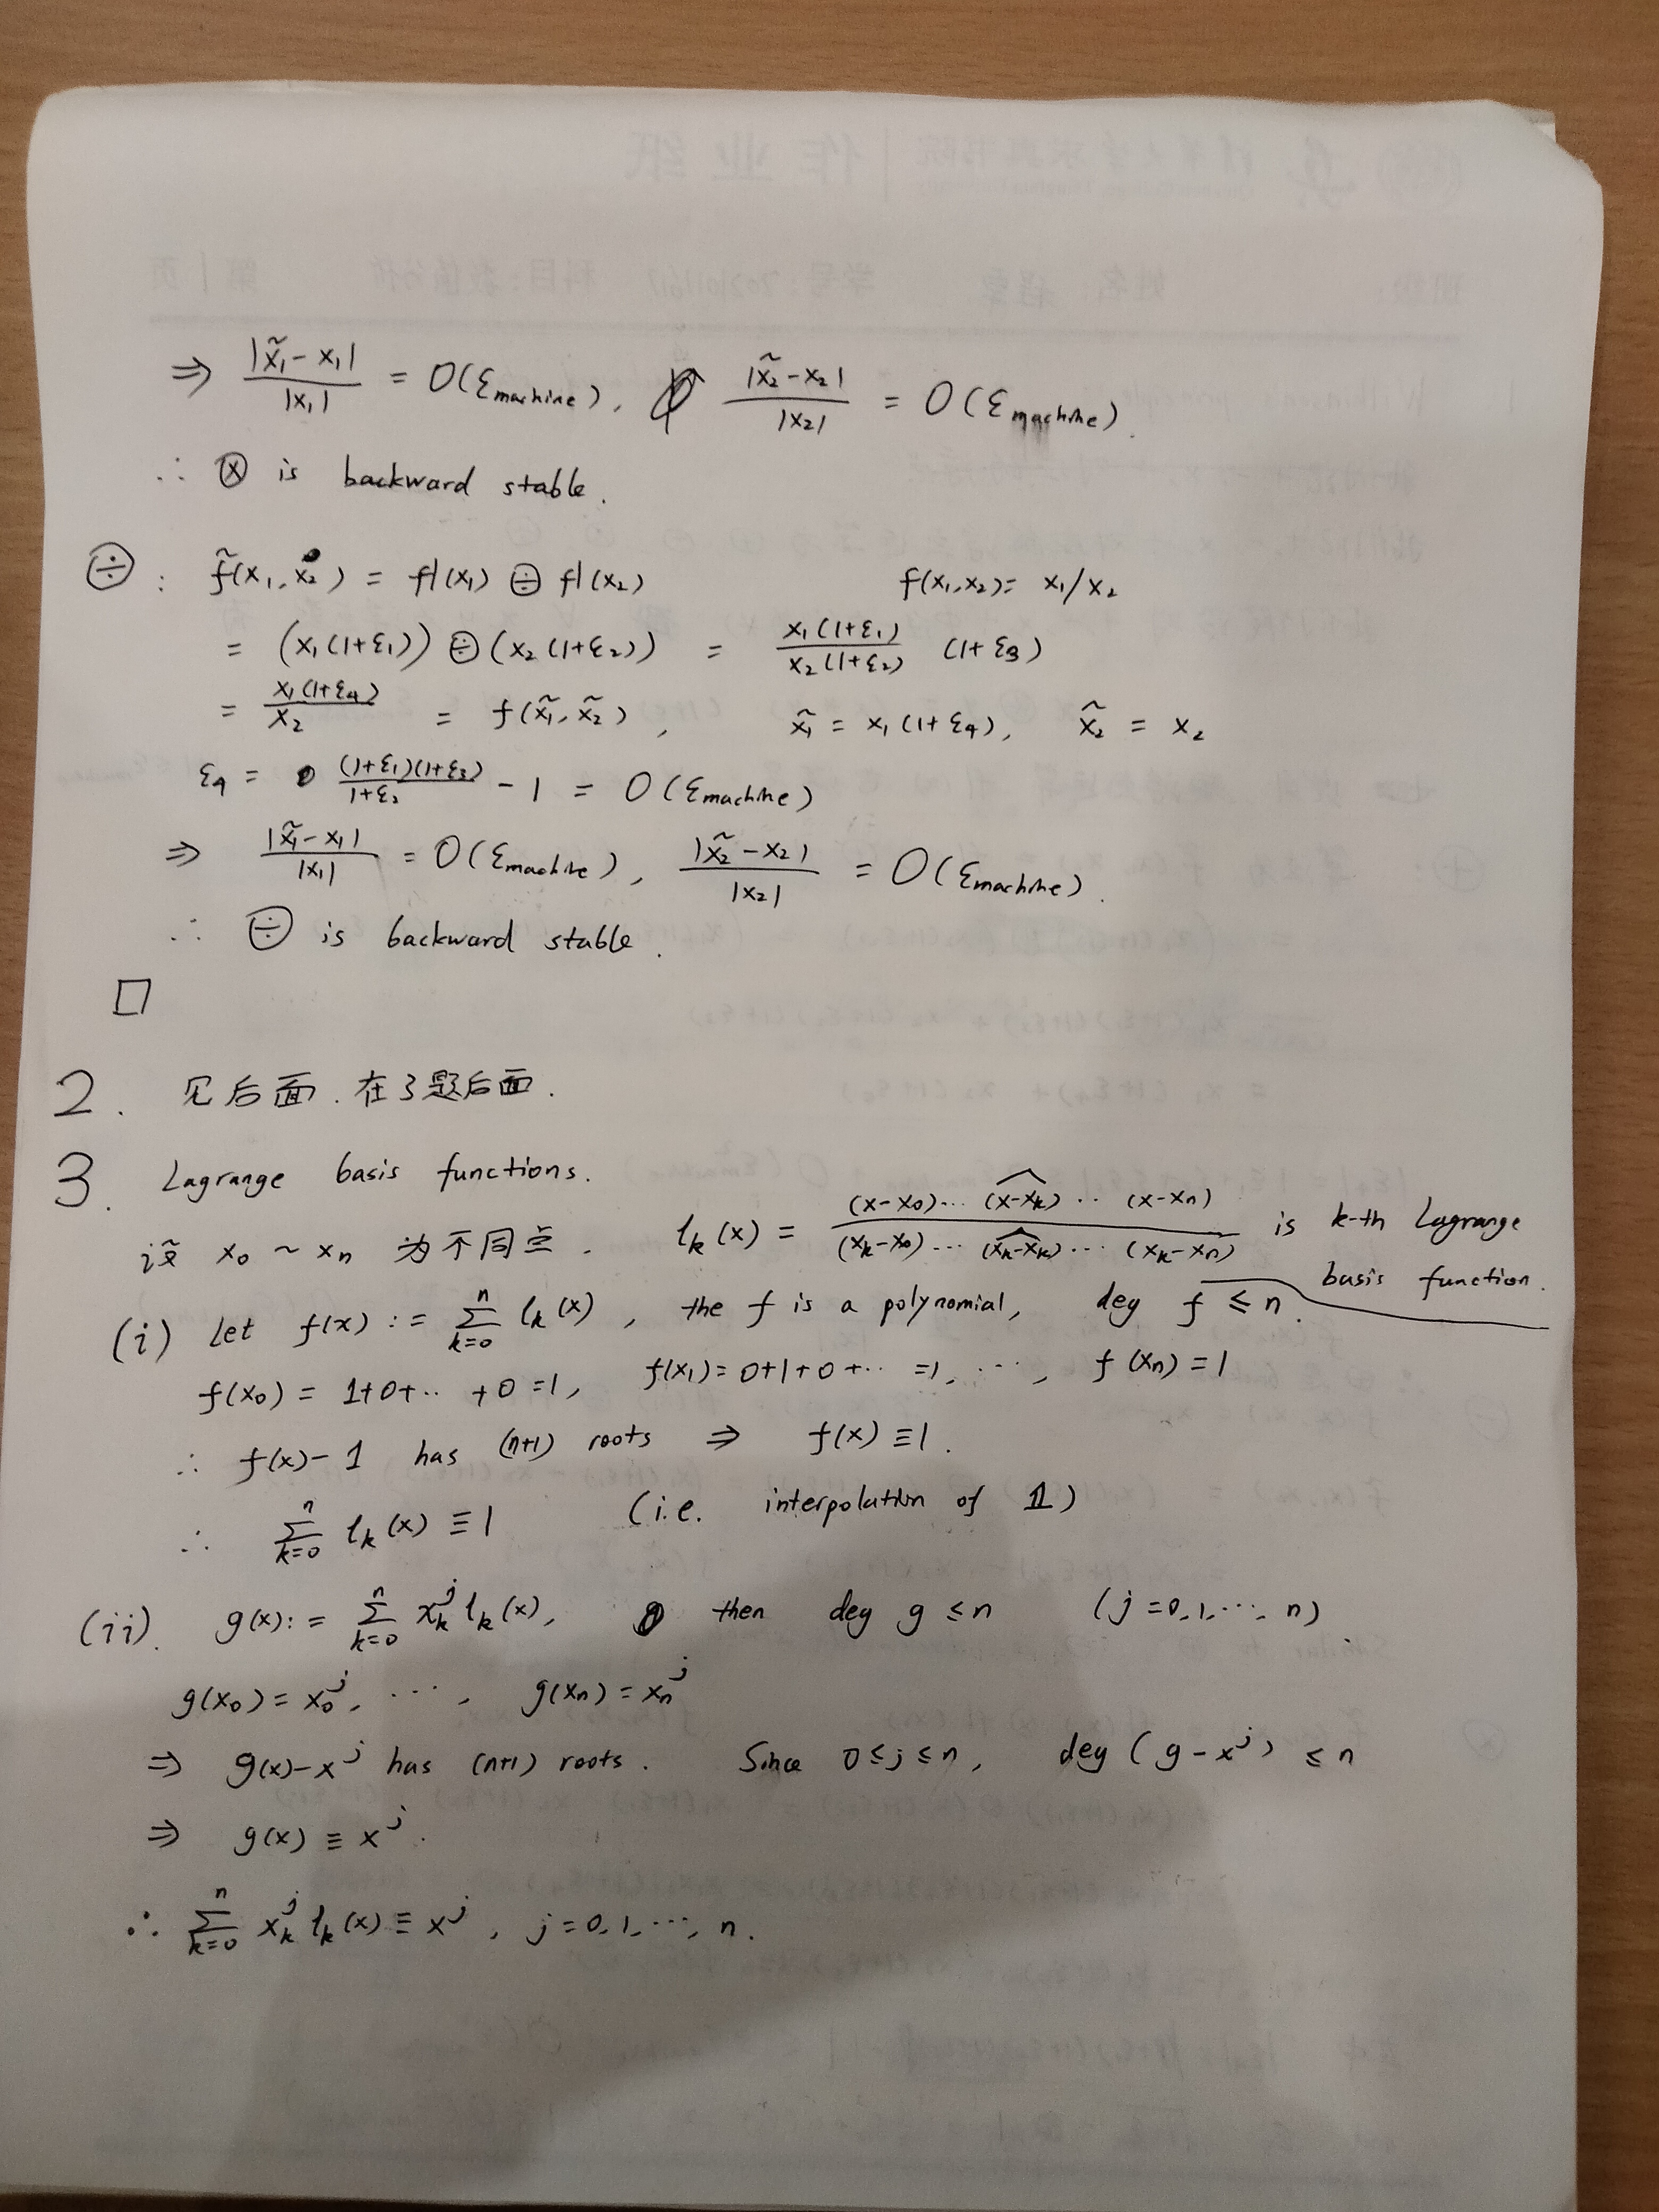 ⇒ |x̃₁ - x₁| / |x₁| = O(ε_machine), |x̃₂ - x₂| / |x₂| = O(ε_machine).
∴ ⊗ is backward stable.
⨸ : f̃(x₁, x₂) = fl(x₁) ⨸ fl(x₂)    f(x₁, x₂) = x₁/x₂
= (x₁(1+ε₁)) ⨸ (x₂(1+ε₂)) = x₁(1+ε₁) / x₂(1+ε₂) (1+ε₃)
= x₁(1+ε₄) / x₂ = f(x̃₁, x̃₂), x̃₁ = x₁(1+ε₄), x̃₂ = x₂
ε₄ = (1+ε₁)(1+ε₃) / 1+ε₂ - 1 = O(ε_machine)
⇒ |x̃₁ - x₁| / |x₁| = O(ε_machine), |x̃₂ - x₂| / |x₂| = O(ε_machine).
∴ ⨸ is backward stable.
□
2. 见后面.在3题后面.
3. Lagrange basis functions.
设 x₀ ~ xₙ 为不同点. lₖ(x) = (x-x₀)⋯(x-xₖ)^⋯(x-xₙ) / (xₖ-x₀)⋯(xₖ-xₖ)^⋯(xₖ-xₙ) is k-th Lagrange
basis function.
(i) Let f(x) := Σ_{k=0}^{n} lₖ(x), the f is a polynomial, deg f ≤ n.
f(x₀) = 1+0+⋯+0 = 1, f(x₁) = 0+1+0+⋯ = 1, ⋯, f(xₙ) = 1
∴ f(x) - 1 has (n+1) roots ⇒ f(x) ≡ 1.
∴ Σ_{k=0}^{n} lₖ(x) ≡ 1 (i.e. interpolation of 𝟙)
(ii). g(x) := Σ_{k=0}^{n} xₖʲ lₖ(x), then deg g ≤ n (j=0,1,⋯,n).
g(x₀) = x₀ʲ, ⋯, g(xₙ) = xₙʲ
⇒ g(x) - xʲ has (n+1) roots. Since 0 ≤ j ≤ n, deg (g - xʲ) ≤ n
⇒ g(x) ≡ xʲ.
∴ Σ_{k=0}^{n} xₖʲ lₖ(x) ≡ xʲ, j=0,1,⋯,n.